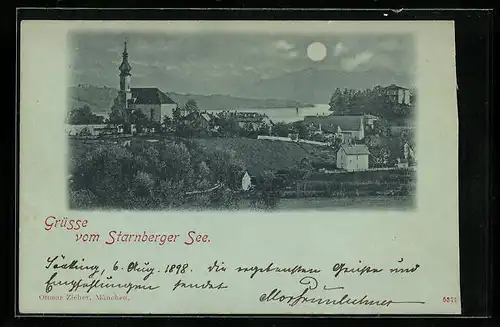 Grüsse
vom Starnberger See.
Söcking, 6. Aug. 1898. die ergebensten Grüsse und
Empfehlungen sendet
Ottmar Zieher, München.